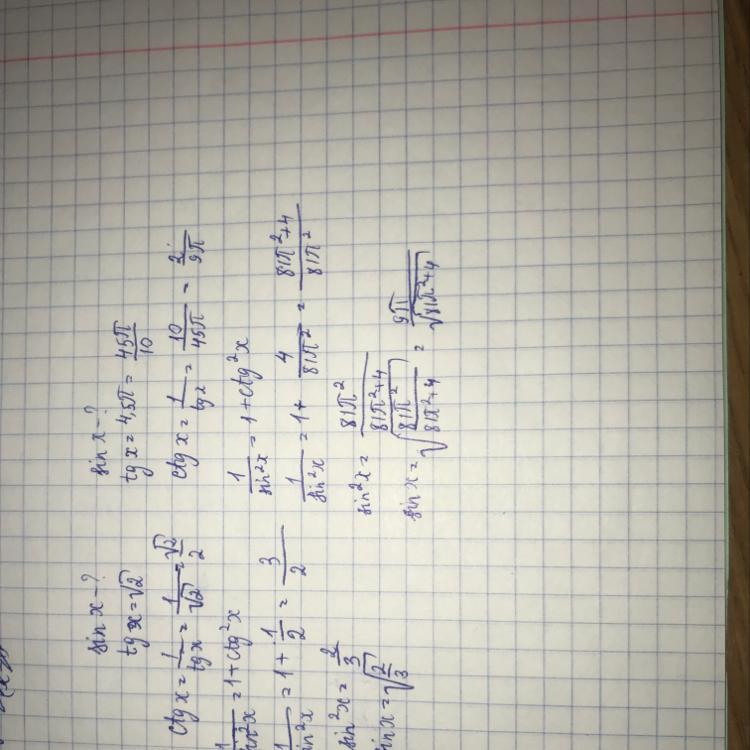 sin x - ?
tg x = √2
ctg x = 1/tg x = 1/√2 = √2/2
1/sin²x = 1 + ctg²x
1/sin²x = 1 + 1/2 = 3/2
sin²x = 2/3
sin x = √(2/3)
sin x - ?
tg x = 4,5π = 45π/10
ctg x = 1/tg x = 10/45π = 2/9π
1/sin²x = 1 + ctg²x
1/sin²x = 1 + 4/81π² = 81π²+4/81π²
sin²x = 81π²/81π²+4
sin x = √(81π²/81π²+4) = 9π/√(81π²+4)